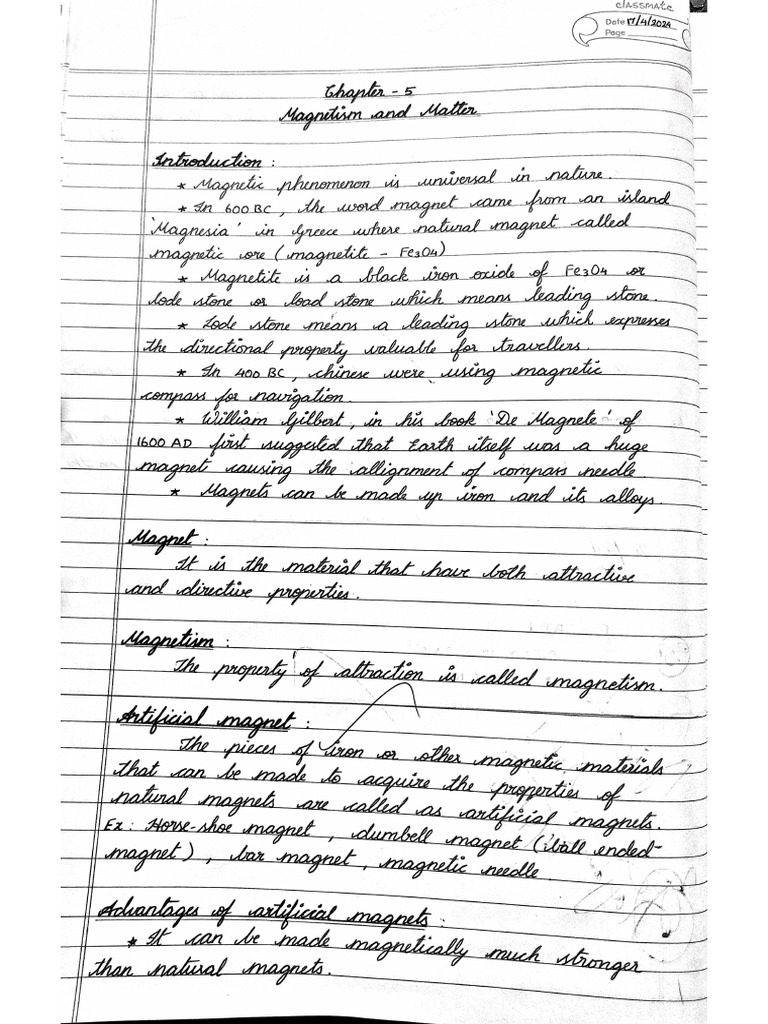 classmate
Date 17/4/2024
Page
Chapter - 5
Magnetism and Matter
Introduction :
* Magnetic phenomenon is universal in nature.
* In 600 BC, the word magnet came from an island
'Magnesia' in Greece where natural magnet called
magnetic ore (magnetite - Fe3O4)
* Magnetite is a black iron oxide of Fe3O4 or
lode stone or load stone which means leading stone.
* Lode stone means a leading stone which expresses
the directional property valuable for travellers.
* In 400 BC, chinese were using magnetic
compass for navigation.
* William Gilbert, in his book 'De Magnete' of
1600 AD first suggested that Earth itself was a huge
magnet causing the allignment of compass needle
* Magnets can be made up iron and its alloys.
Magnet :
It is the material that have both attractive
and directive properties.
Magnetism :
The property of attraction is called magnetism.
Artificial magnet :
The pieces of iron or other magnetic materials
that can be made to acquire the properties of
natural magnets are called as artificial magnets.
Ex: Horse-shoe magnet, dumbell magnet (ball ended-
magnet), bar magnet, magnetic needle.
Advantages of artificial magnets :
* It can be made magnetically much stronger
than natural magnets.